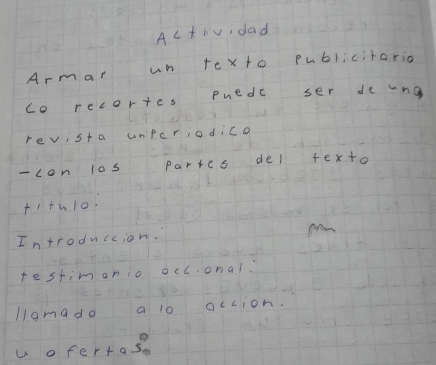 Actividad
Armar un texto publicitario
co recortes puede ser de una
revista unperiodico
-con los partes del texto
titulo:
Introduccion:
testimonio occional:
llamado a lo accion:
u ofertas: